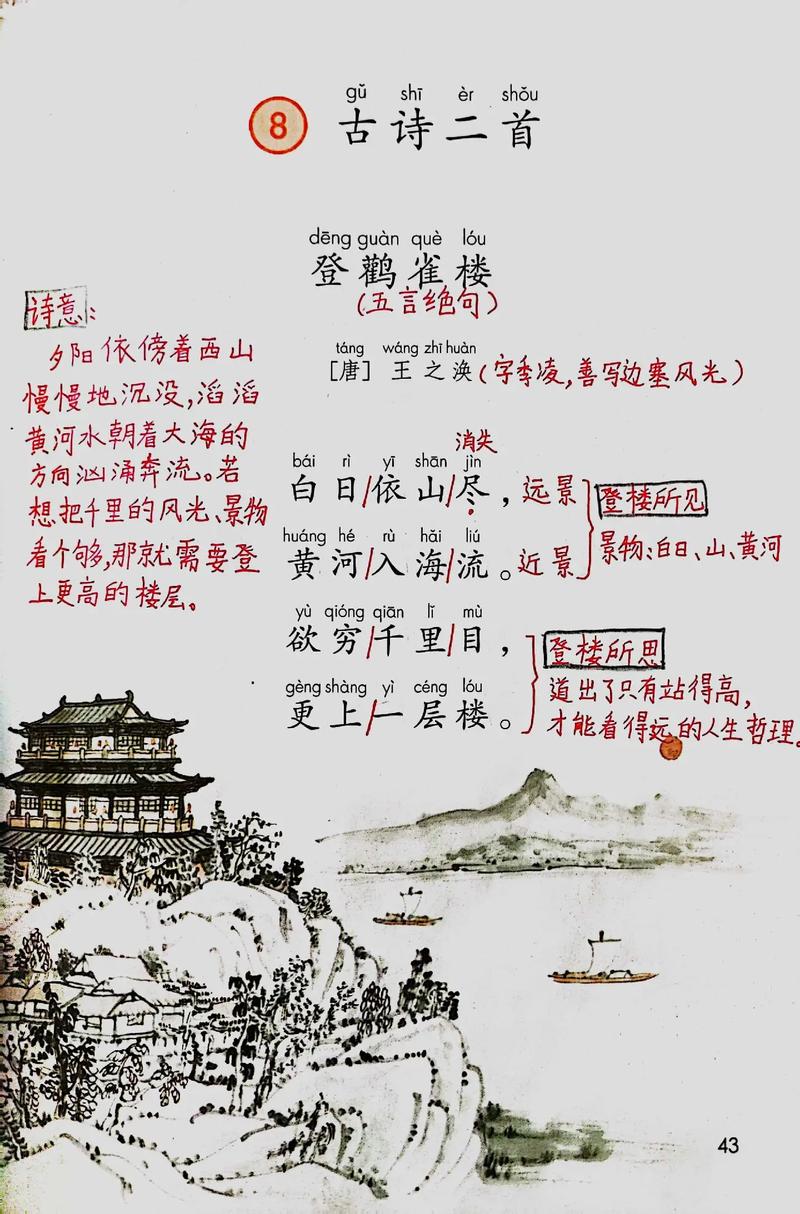 gǔ shī èr shǒu
8 古诗二首
dēng guàn què lóu
登鹳雀楼
(五言绝句)
táng wáng zhī huàn
[唐] 王之涣(字季凌,善写边塞风光)
诗意:
夕阳依傍着西山
慢慢地沉没,滔滔
黄河水朝着大海的
方向汹涌奔流。若
想把千里的风光、景物
看个够,那就需要登
上更高的楼层。
消失
bái rì yī shān jìn
白日/依山/尽,远景
huáng hé rù hǎi liú
黄河/入海/流。近景
登楼所见
景物:白日、山、黄河
yù qióng qiān lǐ mù
欲穷/千里/目,
gèng shàng yì céng lóu
更上/一层楼。
登楼所思
道出了只有站得高,
才能看得远的人生哲理。
43